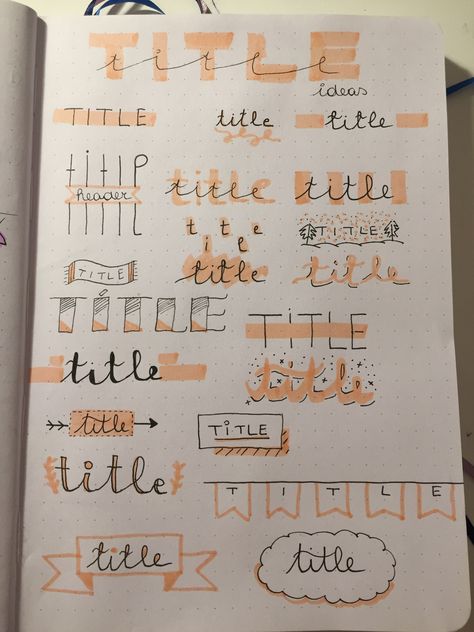 TITLE
title
ideas
TITLE title title
title
header
title title
title
TITLE
TITLE title title
TiTLE
TiTLE
title title
title TiTLE
title
TITLE
title title